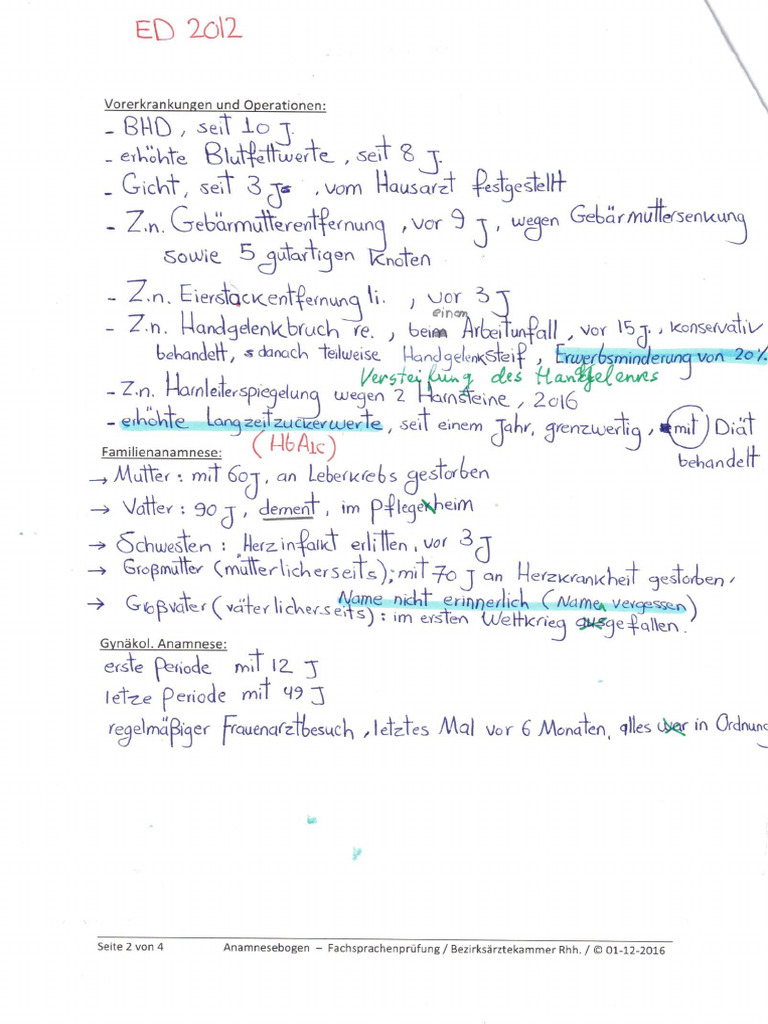 ED 2012
Vorerkrankungen und Operationen:
- BHD, seit 10 J.
- erhöhte Blutfettwerte, seit 8 J.
- Gicht, seit 3 J, vom Hausarzt festgestellt
- Z.n. Gebärmutterentfernung, vor 9 J, wegen Gebärmuttersenkung
sowie 5 gutartigen Knoten
- Z.n. Eierstockentfernung li., vor 3 J
einem
- Z.n. Handgelenkbruch re., bei Arbeitunfall, vor 15 J., konservativ
behandelt, danach teilweise Handgelenksteif, Erwerbsminderung von 20%
Versteifung des Handgelenkes
- Z.n. Harnleiterspiegelung wegen 2 Harnsteine, 2016
- erhöhte Langzeitzuckerwerte, seit einem Jahr, grenzwertig, mit Diät
(HbA1c) behandelt
Familienanamnese:
→ Mutter: mit 60 J, an Leberkrebs gestorben
→ Vatter: 90 J, dement, im Pflegeheim
→ Schwesten: Herzinfarkt erlitten, vor 3 J
→ Großmutter (mütterlicherseits); mit 70 J an Herzkrankheit gestorben,
Name nicht erinnerlich (Name vergessen)
→ Großvater (väterlicherseits): im ersten Weltkrieg gefallen.
Gynäkol. Anamnese:
erste Periode mit 12 J
letze Periode mit 49 J
regelmäßiger Frauenarztbesuch, letztes Mal vor 6 Monaten, alles in Ordnung
Seite 2 von 4 Anamnesebogen – Fachsprachenprüfung / Bezirksärztekammer Rhh. / © 01-12-2016